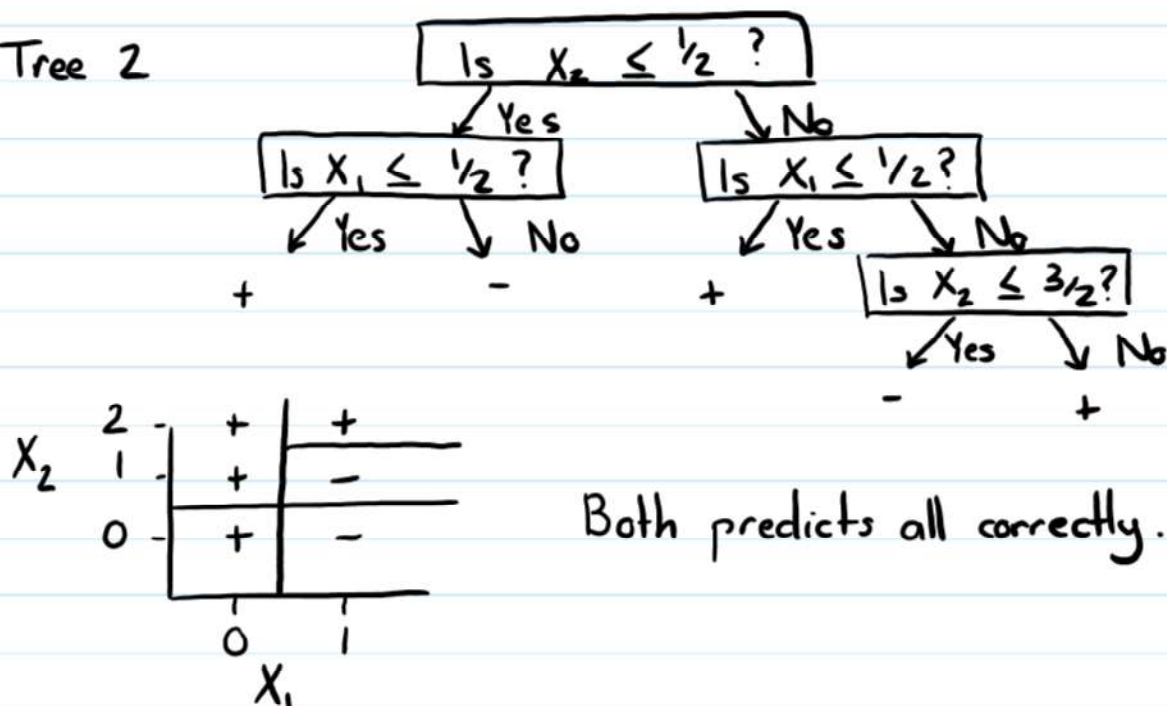 Tree 2
Is X₂ ≤ 1/2 ?
Yes No
Is X₁ ≤ 1/2 ? Is X₁ ≤ 1/2?
Yes No Yes No
+ - + Is X₂ ≤ 3/2?
Yes No
- +
2 - + +
X₂ 1 - + -
0 - + -
Both predicts all correctly.
0 1
X₁